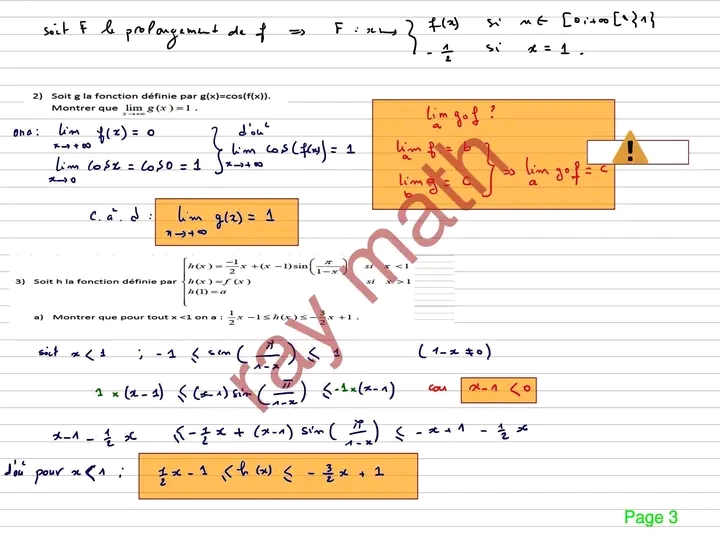 soit F le prolongement de f ⇒ F : x ↦ { f(x) si x ∈ [0;+∞[\{1}
-1/2 si x = 1 .
2) Soit g la fonction définie par g(x)=cos(f(x)).
Montrer que lim x→+∞ g(x)=1 .
ona : lim x→+∞ f(x) = 0
lim x→0 cosx = cos0 = 1 } d'où lim x→+∞ cos(f(x)) = 1
c. à. d : lim x→+∞ g(x) = 1
lim a gof ?
lim a f = b
lim b g = c } ⇒ lim a gof = c
!
3) Soit h la fonction définie par { h(x)=-1/2 x+(x-1)sin(π/1-x) si x <1
h(x)=f(x) si x >1
h(1)=a
a) Montrer que pour tout x <1 on a : 1/2 x -1≤h(x)≤-3/2 x+1 .
soit x < 1 ; -1 ≤ sin(π/1-x) ≤ 1 (1-x ≠ 0)
1×(x-1) ≤ (x-1)sin(π/1-x) ≤ -1×(x-1) car x-1 < 0
x-1 - 1/2 x ≤ -1/2 x + (x-1) sin(π/1-x) ≤ -x+1 - 1/2 x
d'où pour x < 1 ; 1/2 x - 1 ≤ h(x) ≤ - 3/2 x + 1
ray math
Page 3